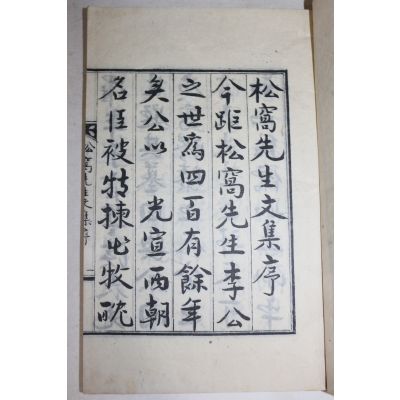 松窩先生文集序
今距松窩先生李公
之世爲四百有餘年
矣公以 光宣兩朝
名臣被特揀出牧耽
松窩先生文集序